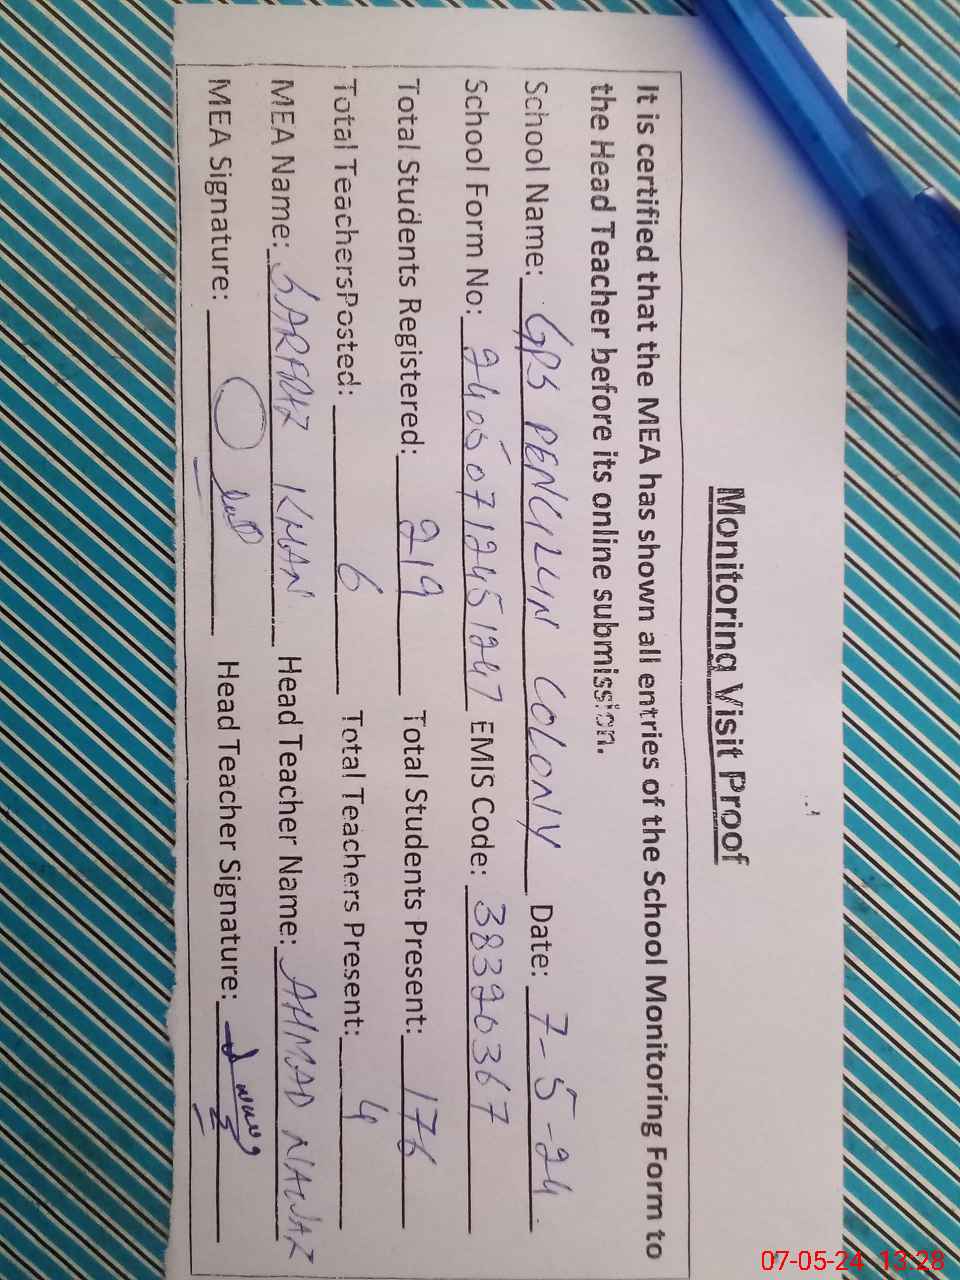 Monitoring Visit Proof
It is certified that the MEA has shown all entries of the School Monitoring Form to
the Head Teacher before its online submission.
School Name: GPS PENCILLIN COLONY Date: 7-5-24
School Form No: 24050712451247 EMIS Code: 38320367
Total Students Registered: 219 Total Students Present: 176
Total TeachersPosted: 6 Total Teachers Present: 4
MEA Name: SARFRAZ KHAN Head Teacher Name: AHMAD NAWAZ
MEA Signature: Head Teacher Signature:
07-05-24 13:28